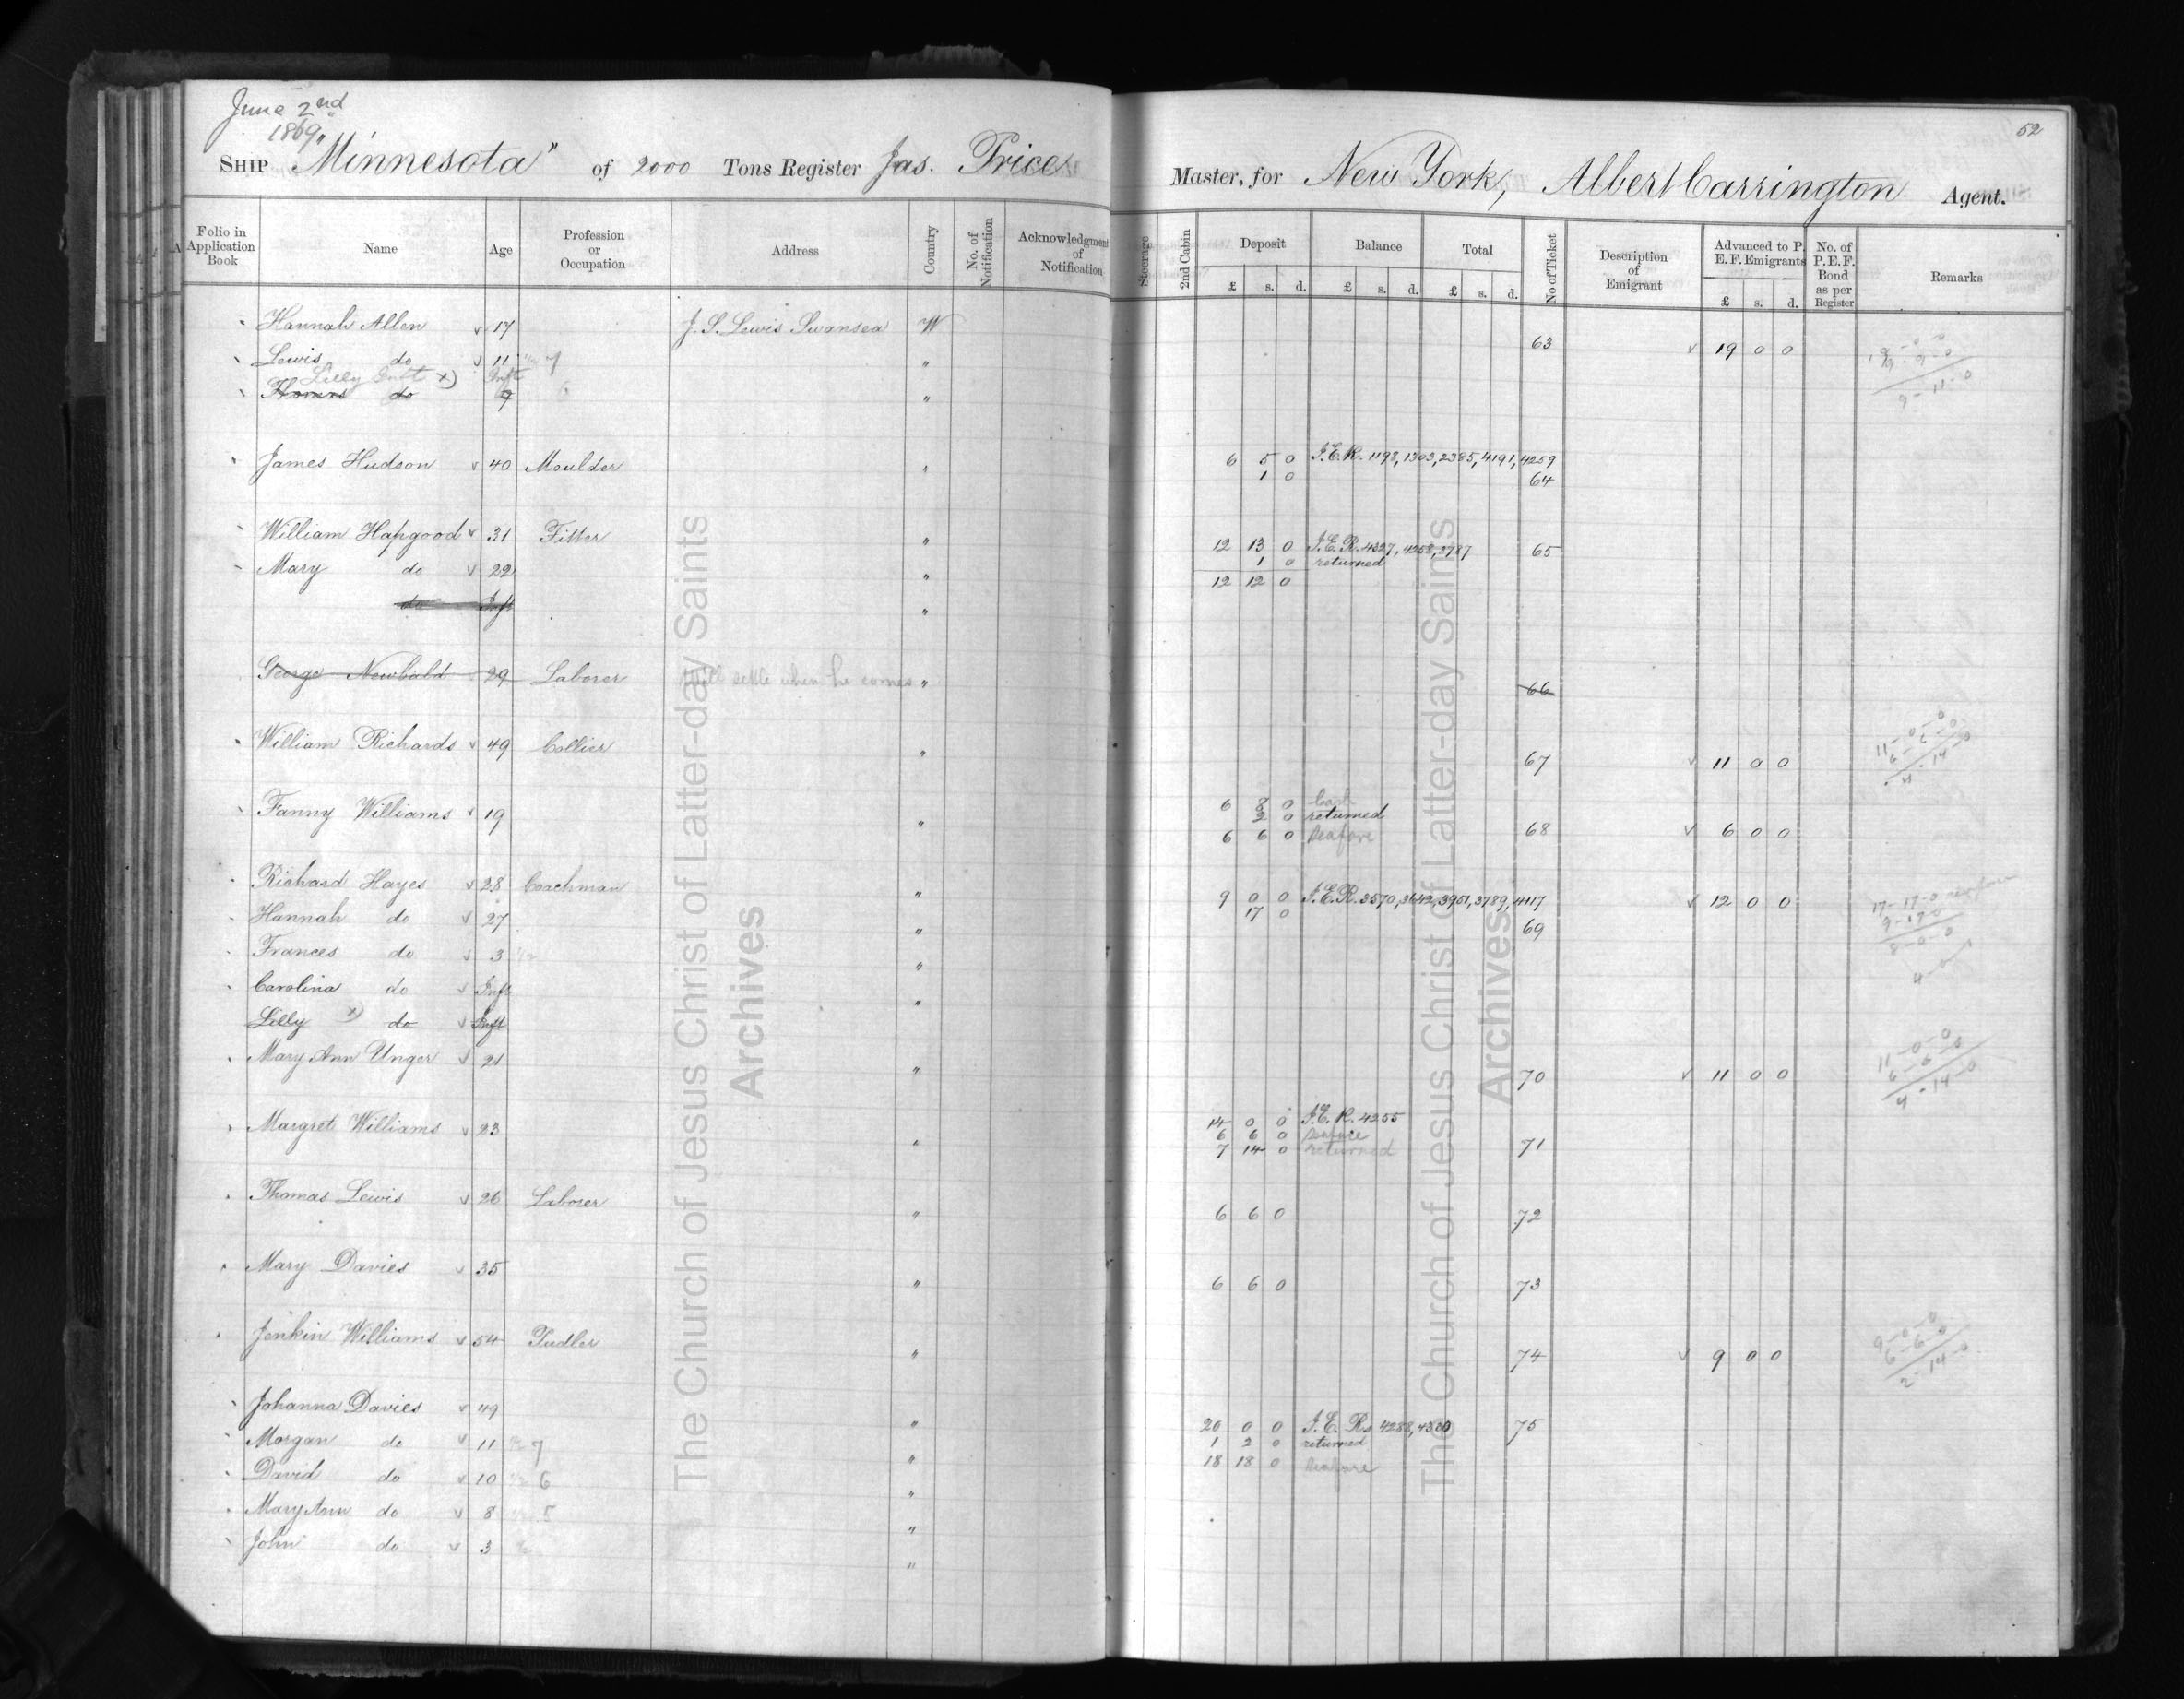 June 2nd
1869,
52
SHIP "Minnesota" of 2000 Tons Register Jas. Price Master, for New York, Albert Carrington Agent.
Folio in Application Book Name Age Profession or Occupation Address Country No. of Notification Acknowledgment of Notification Steerage 2nd Cabin Deposit £ s. d. Balance £ s. d. Total £ s. d. No of Ticket Description of Emigrant Advanced to P. E. F. Emigrants £ s. d. No. of P. E. F. Bond as per Register Remarks
Hannah Allen 17 J. S. Lewis Swansea W 63 19 0 0
Lewis do 11 7 "
Lilly Inft x) Inft
do "
9-11-0
James Hudson 40 Moulder " 6 5 0 I.E.R. 1198, 1303, 2385, 4191, 4259
1 0 64
William Hapgood 31 Fitter " 12 13 0 I.E.R. 4327, 4258, 3787 65
1 0 returned
Mary do 22 " 12 12 0
do Inft "
George Newbald 29 Laborer Will settle when he comes " 66
William Richards 49 Collier " 67 11 0 0
11-0-0
6-6-0
4-14-0
Fanny Williams 19 " 6 8 0 Cash
2 0 returned
6 6 0 Seafare 68 6 0 0
Richard Hayes 28 Coachman " 9 0 0 I.E.R. 3570, 3642, 3951, 3789, 4117 12 0 0
17 0 69
17-17-0
9-17-0
8-0-0
4-0
Hannah do 27 "
Frances do 3 "
Carolina do Inft "
Lilly x) do Inft
Mary Ann Unger 21 " 70 11 0 0
11-0-0
6-6-0
4-14-0
Margret Williams 23 " 14 0 0 I.E.R. 4255
6 6 0 Seafare
7 14 0 returned 71
Thomas Lewis 26 Laborer " 6 6 0 72
Mary Davies 35 " 6 6 0 73
Jenkin Williams 54 Pudler " 74 9 0 0
9-0-0
6-6-0
2-14-0
Johanna Davies 49 " 20 0 0 I.E.Rs 4288, 4300 75
Morgan do 11 7 " 1 2 0 returned
18 18 0 Seafare
David do 10 6 "
Mary Ann do 8 5 "
John do 3 "
The Church of Jesus Christ of Latter-day Saints
Archives
The Church of Jesus Christ of Latter-day Saints
Archives